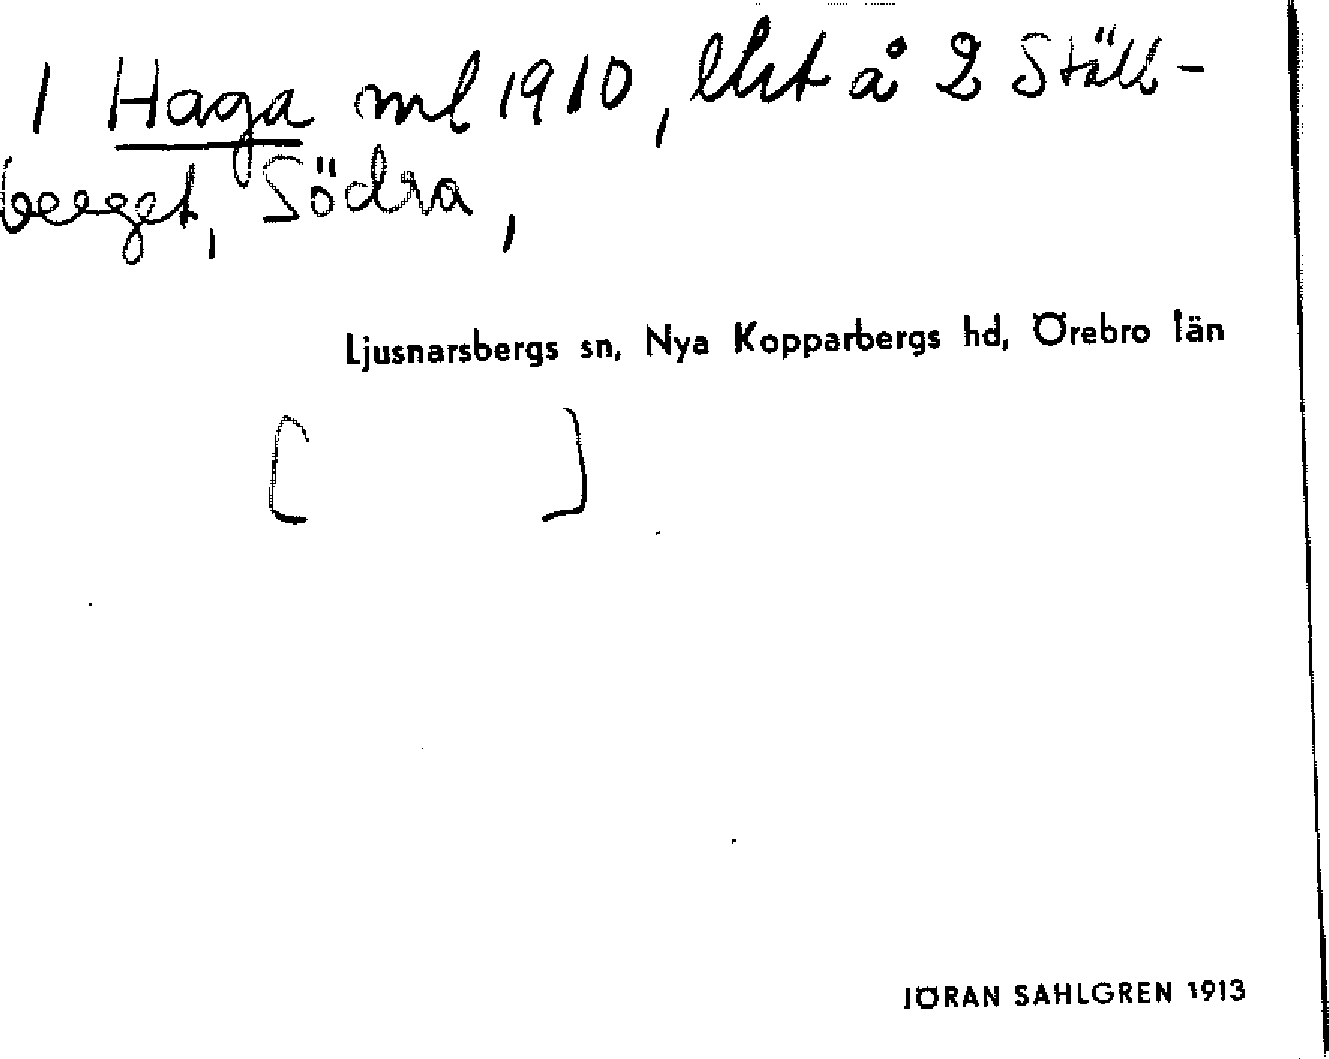 1 Haga ml 1910, lht å 2 Ställ-
berget, Södra,
Ljusnarsbergs sn, Nya Kopparbergs hd, Örebro län
[ ]
JÖRAN SAHLGREN 1913